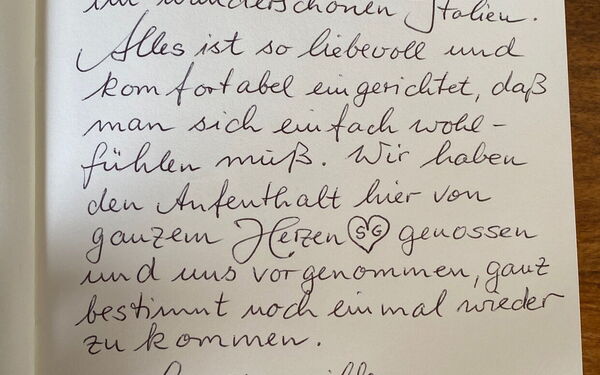 im wunderschönen Italien.
Alles ist so liebevoll und
komfortabel eingerichtet, daß
man sich einfach wohl-
fühlen muß. Wir haben
den Aufenthalt hier von
ganzem Herzen SG genossen
und uns vorgenommen, ganz
bestimmt noch einmal wieder
zu kommen.